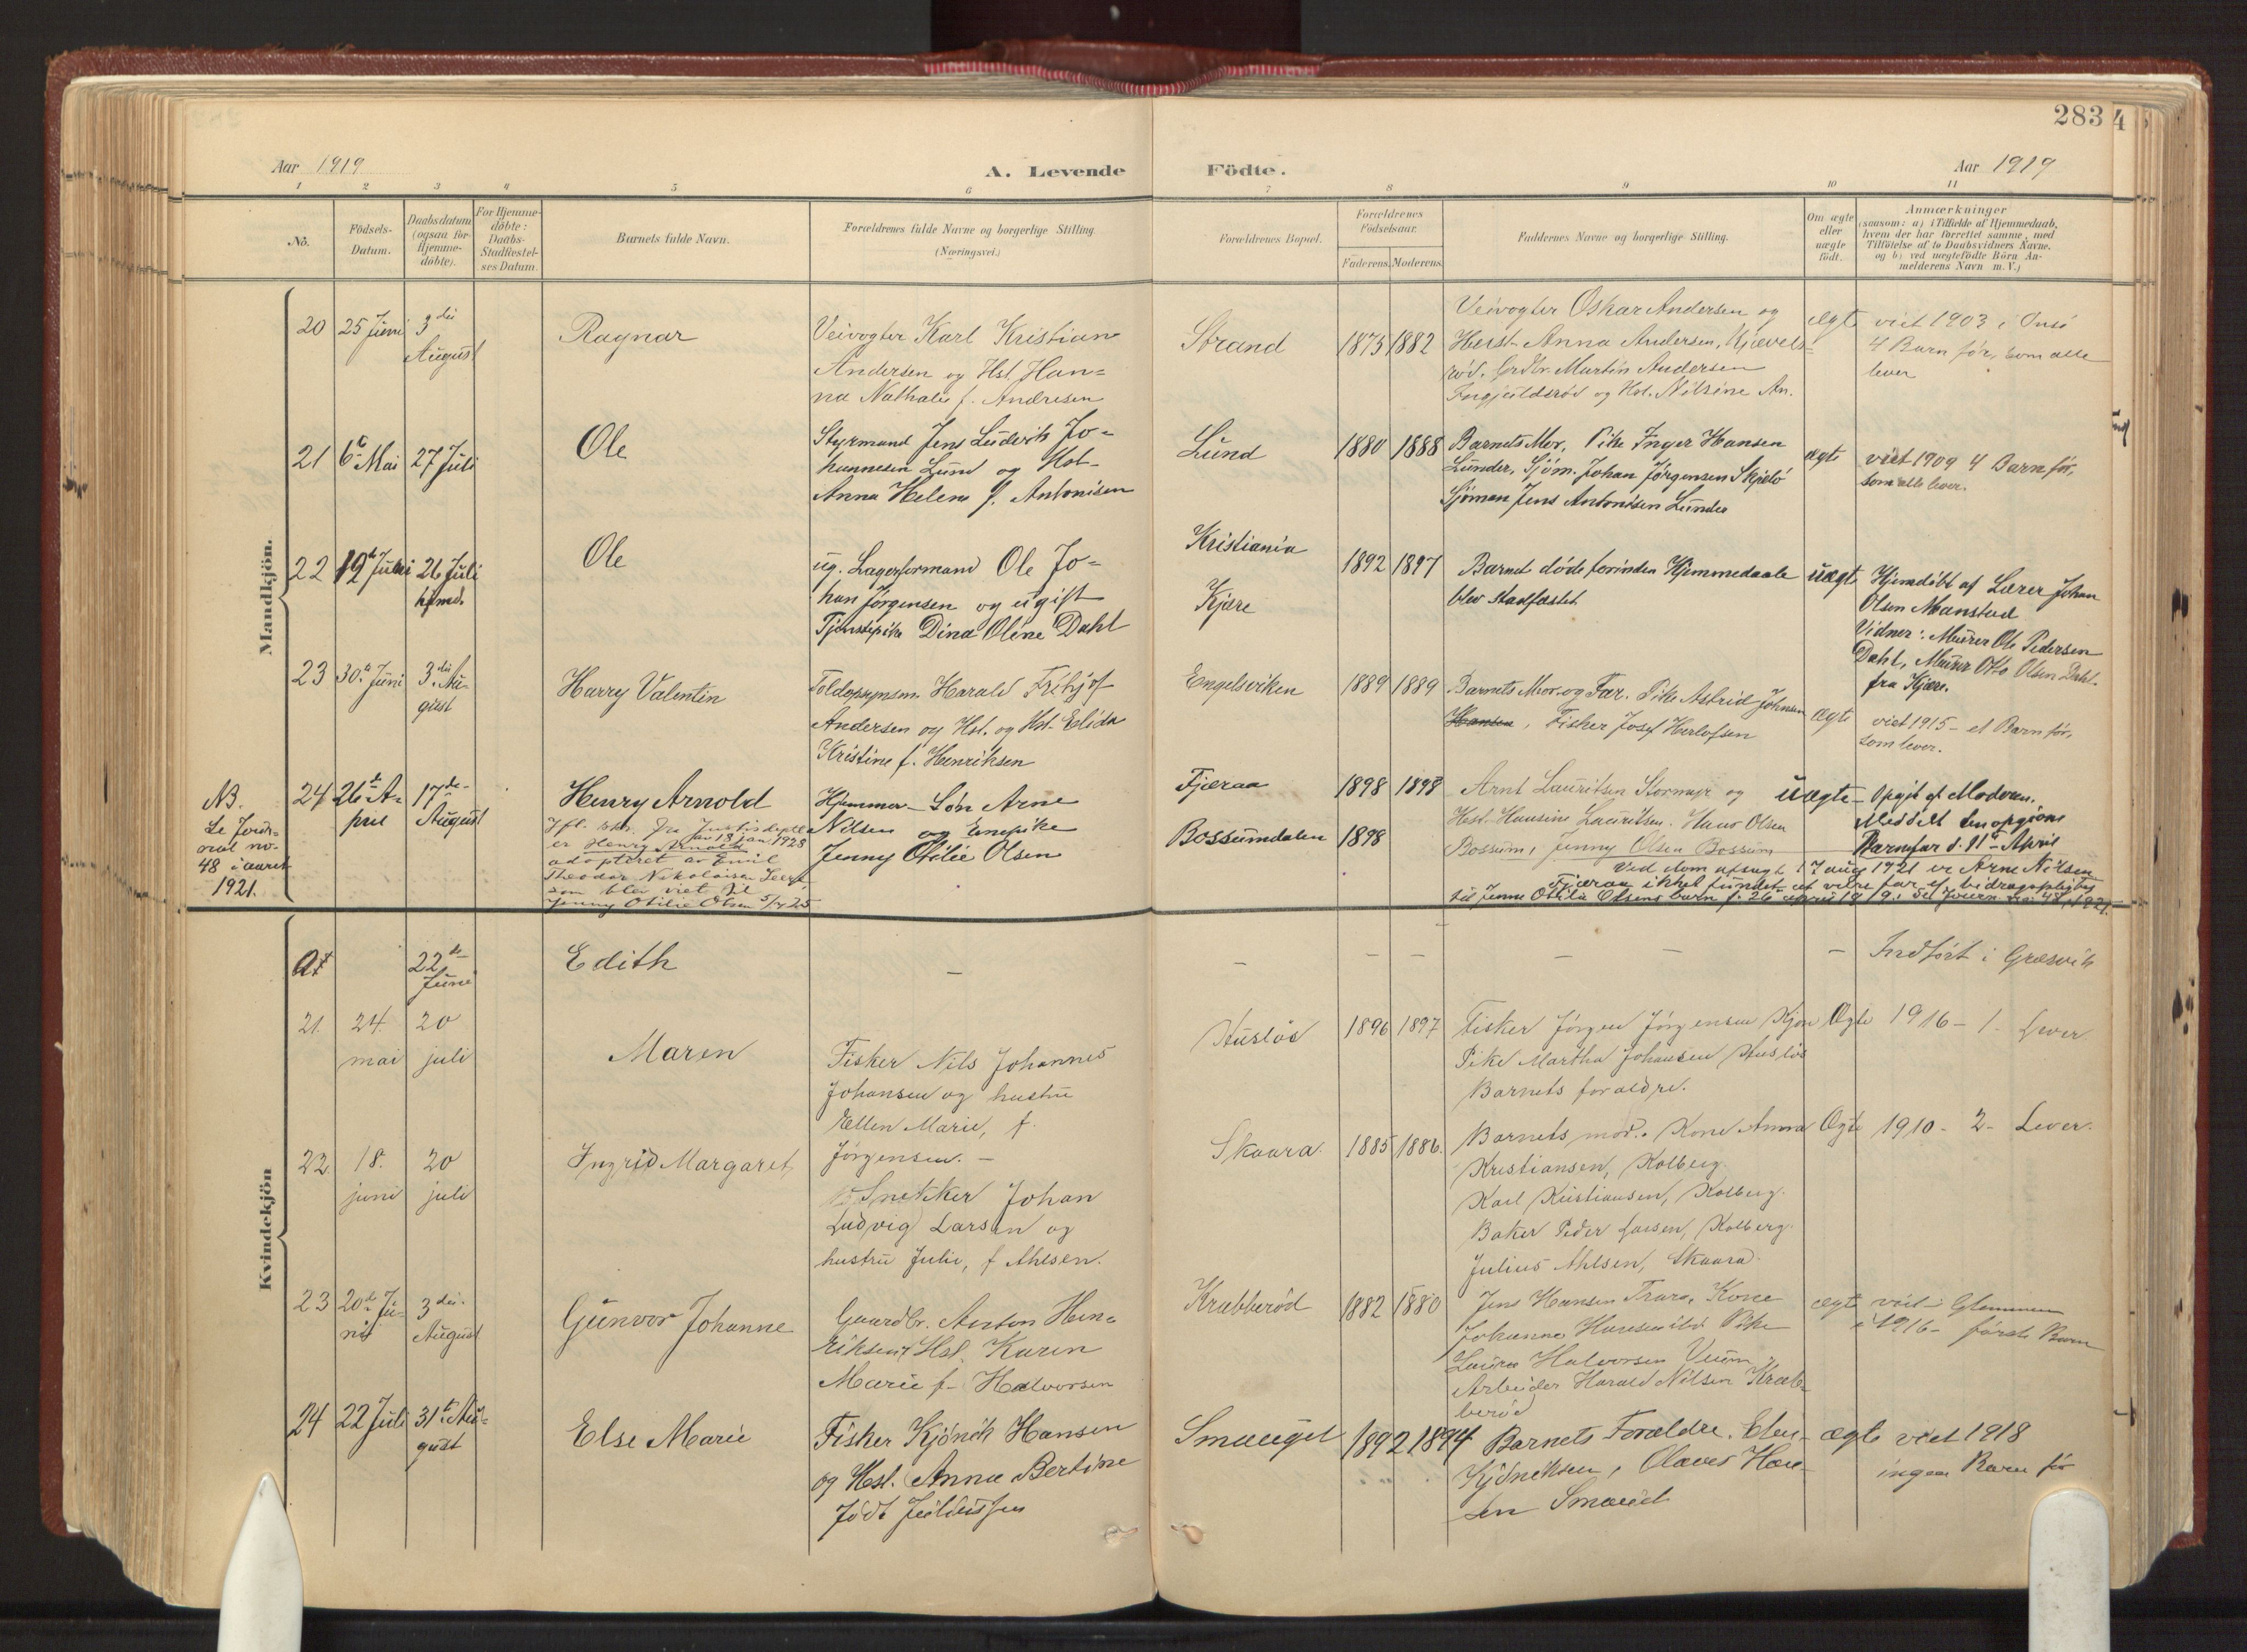 283
4
Aar 1919
A. Levende
Födte.
Aar 1919
1 2 3 4 5 6 7 8 9 10 11
No.
Födsels-
Datum.
Daabsdatum
(ogsaa for
Hjemme-
döbte).
For Hjemme-
döbte:
Daabs-
Stadfæstel-
ses Datum.
Barnets fulde Navn.
Forældrenes fulde Navne og borgerlige Stilling
(Næringsvei.)
Forældrenes Bopæl.
Forældrenes
Födselsaar.
Faderens.
Moderens.
Faddernes Navne og borgerlige Stilling.
Om ægte
eller
uægte
födt.
Anmærkninger
(saasom: a) i Tilfælde af Hjemmedaab,
hvem der har forrettet samme, med
Tilföielse af to Daabsvidners Navne.
og b) ved uægtefödte Börn An-
melderens Navn m. V.)
Mandkjön.
20
25 Juni
3 die
August
Ragnar
Veivogter Karl Kristian
Andersen og Hst. Han=
na Nathalie f. Andresen
Strand
1875
1882
Veivogter Oskar Andersen og
Hust. Anna Andersen,
rød. Grdbr. Martin Andersen
og Hst. Nilsine An.
ægte
viet 1903 i Onsö
4 Barn før, som alle
lever
21
6te Mai
27 Juli
Ole
Styrmand Jens Ludvik Jo-
hannesen Lund og Hst-
Anna Helene f. Antonisen
Lund
1880
1888
Barnets Mor, Pike Inger Hansen
Lunder, Sjøm. Johan Jørgensen Skjælö
Sjöman Jens Antonisen Lunde
ægte
viet 1909 4 Barn før,
som alle lever.
22
19de Juni
26 Juli
hjmd.
Ole
ug. Lagerformand Ole Jo-
han Jørgensen og ugift
Tjenestepike Dina Oline Dahl
Kristiania
Kjære
1892
1897
Barnet døde forinden Hjemmedaabe
blev stadfæstet
uægte
Hjemdöbt af Lærer Johan
Olsen Manstad
Vidner: Murer Ole Pedersen
Dahl, Murer Otto Olsen Dahl-
fra Kjære.
23
30te Juni
3 die Au-
gust
Harry Valentin
Toldopsynsm. Harald Frithjof
Andersen og Hst. og Hst. Elida
Kristine f. Henriksen
Engelsviken
1889
1889
Barnets Mor og Far. Pike Astrid Johnsen
Hansen, Fisker Josef Herlofsen
ægte
viet 1915 - et Barn før,
som lever.
NB.
Se Jour=
nal no-
48 i aaret
1921.
24
26te A-
pril
17de-
August
Henry Arnold
Ifl. skr. fra Justisdeptet
av 18 jan 1928
er Henry Arnold
adoptert av Emil
Theodor Nikolaisen
som blev viet til
Jenny Otilie Olsen 5/4 25
Hjemmev. Søn Arne
Nilsen og Enepike
Jenny Otilie Olsen
Fjæraa
Bossumdalen
1898
1898
1898
Arnt Lauritsen Stormyr og
Hst. Hansine Lauritsen. Hans Olsen
Bossum, Jenny Olsen Bossum
uægte
Opgit af Modren.
Meddelt den opgivne
Barnefar d. 21de April
Ved dom afsagt 17 aug 1921 er Arne Nilsen
Fjæraa ikke fundet at være far ej bidragspligtig
til Jenny Otilie Olsens barn f. 26 april 1919. Se Journ. no 48, 1921.
Kvindekjön
22de
Juni
Edith
Indført i Græsvik
21.
24.
mai
20
juli
Maren
Fisker Nils Johannes
Johansen og hustru
Ellen Marie, f.
Jørgensen. -
Husløs
1896
1897
Fisker Jørgen Jørgensen Kjøn
Pike Martha Johansen Husløs
Barnets forældre.
Ægte
1916 - 1. Lever
22
18.
juni
20
juli
Ingrid Margaret
Snekker Johan
Ludvig Larsen og
hustru Julie, f. Ahlsen.
Skaara.
1885
1886.
Barnets mor. Kone Anna
Kristiansen, Kolberg.
Karl Kristiansen, Kolberg.
Baker Peder Larsen, Kolberg.
Julius Ahlsen, Skaara.
Ægte
1910 - 2 - Lever.
23
20de Ju-
ni
3 die.
August
Gunvor Johanne
Gaardbr. Anton Hen=
riksen, Hst. Karen
Marie f. Halvorsen
Krabberød
1882
1880
Jens Hansen Trara, Kone
Johanne Pike
Laura Halvorsen Veum,
Arbeider Harald Nilsen Krab-
berød
ægte
viet i Glemmen
i 1916 - første Barn
24
22 Juli
31te Au-
gust
Else Marie
Fisker Kjönik Hansen
og Hst. Anna Bertine
født
Smauget
1892
1894
Barnets Forældre.
Kjöniksen, Olaves Han-
sen Smauet
ægte
viet 1918
ingen Barn før